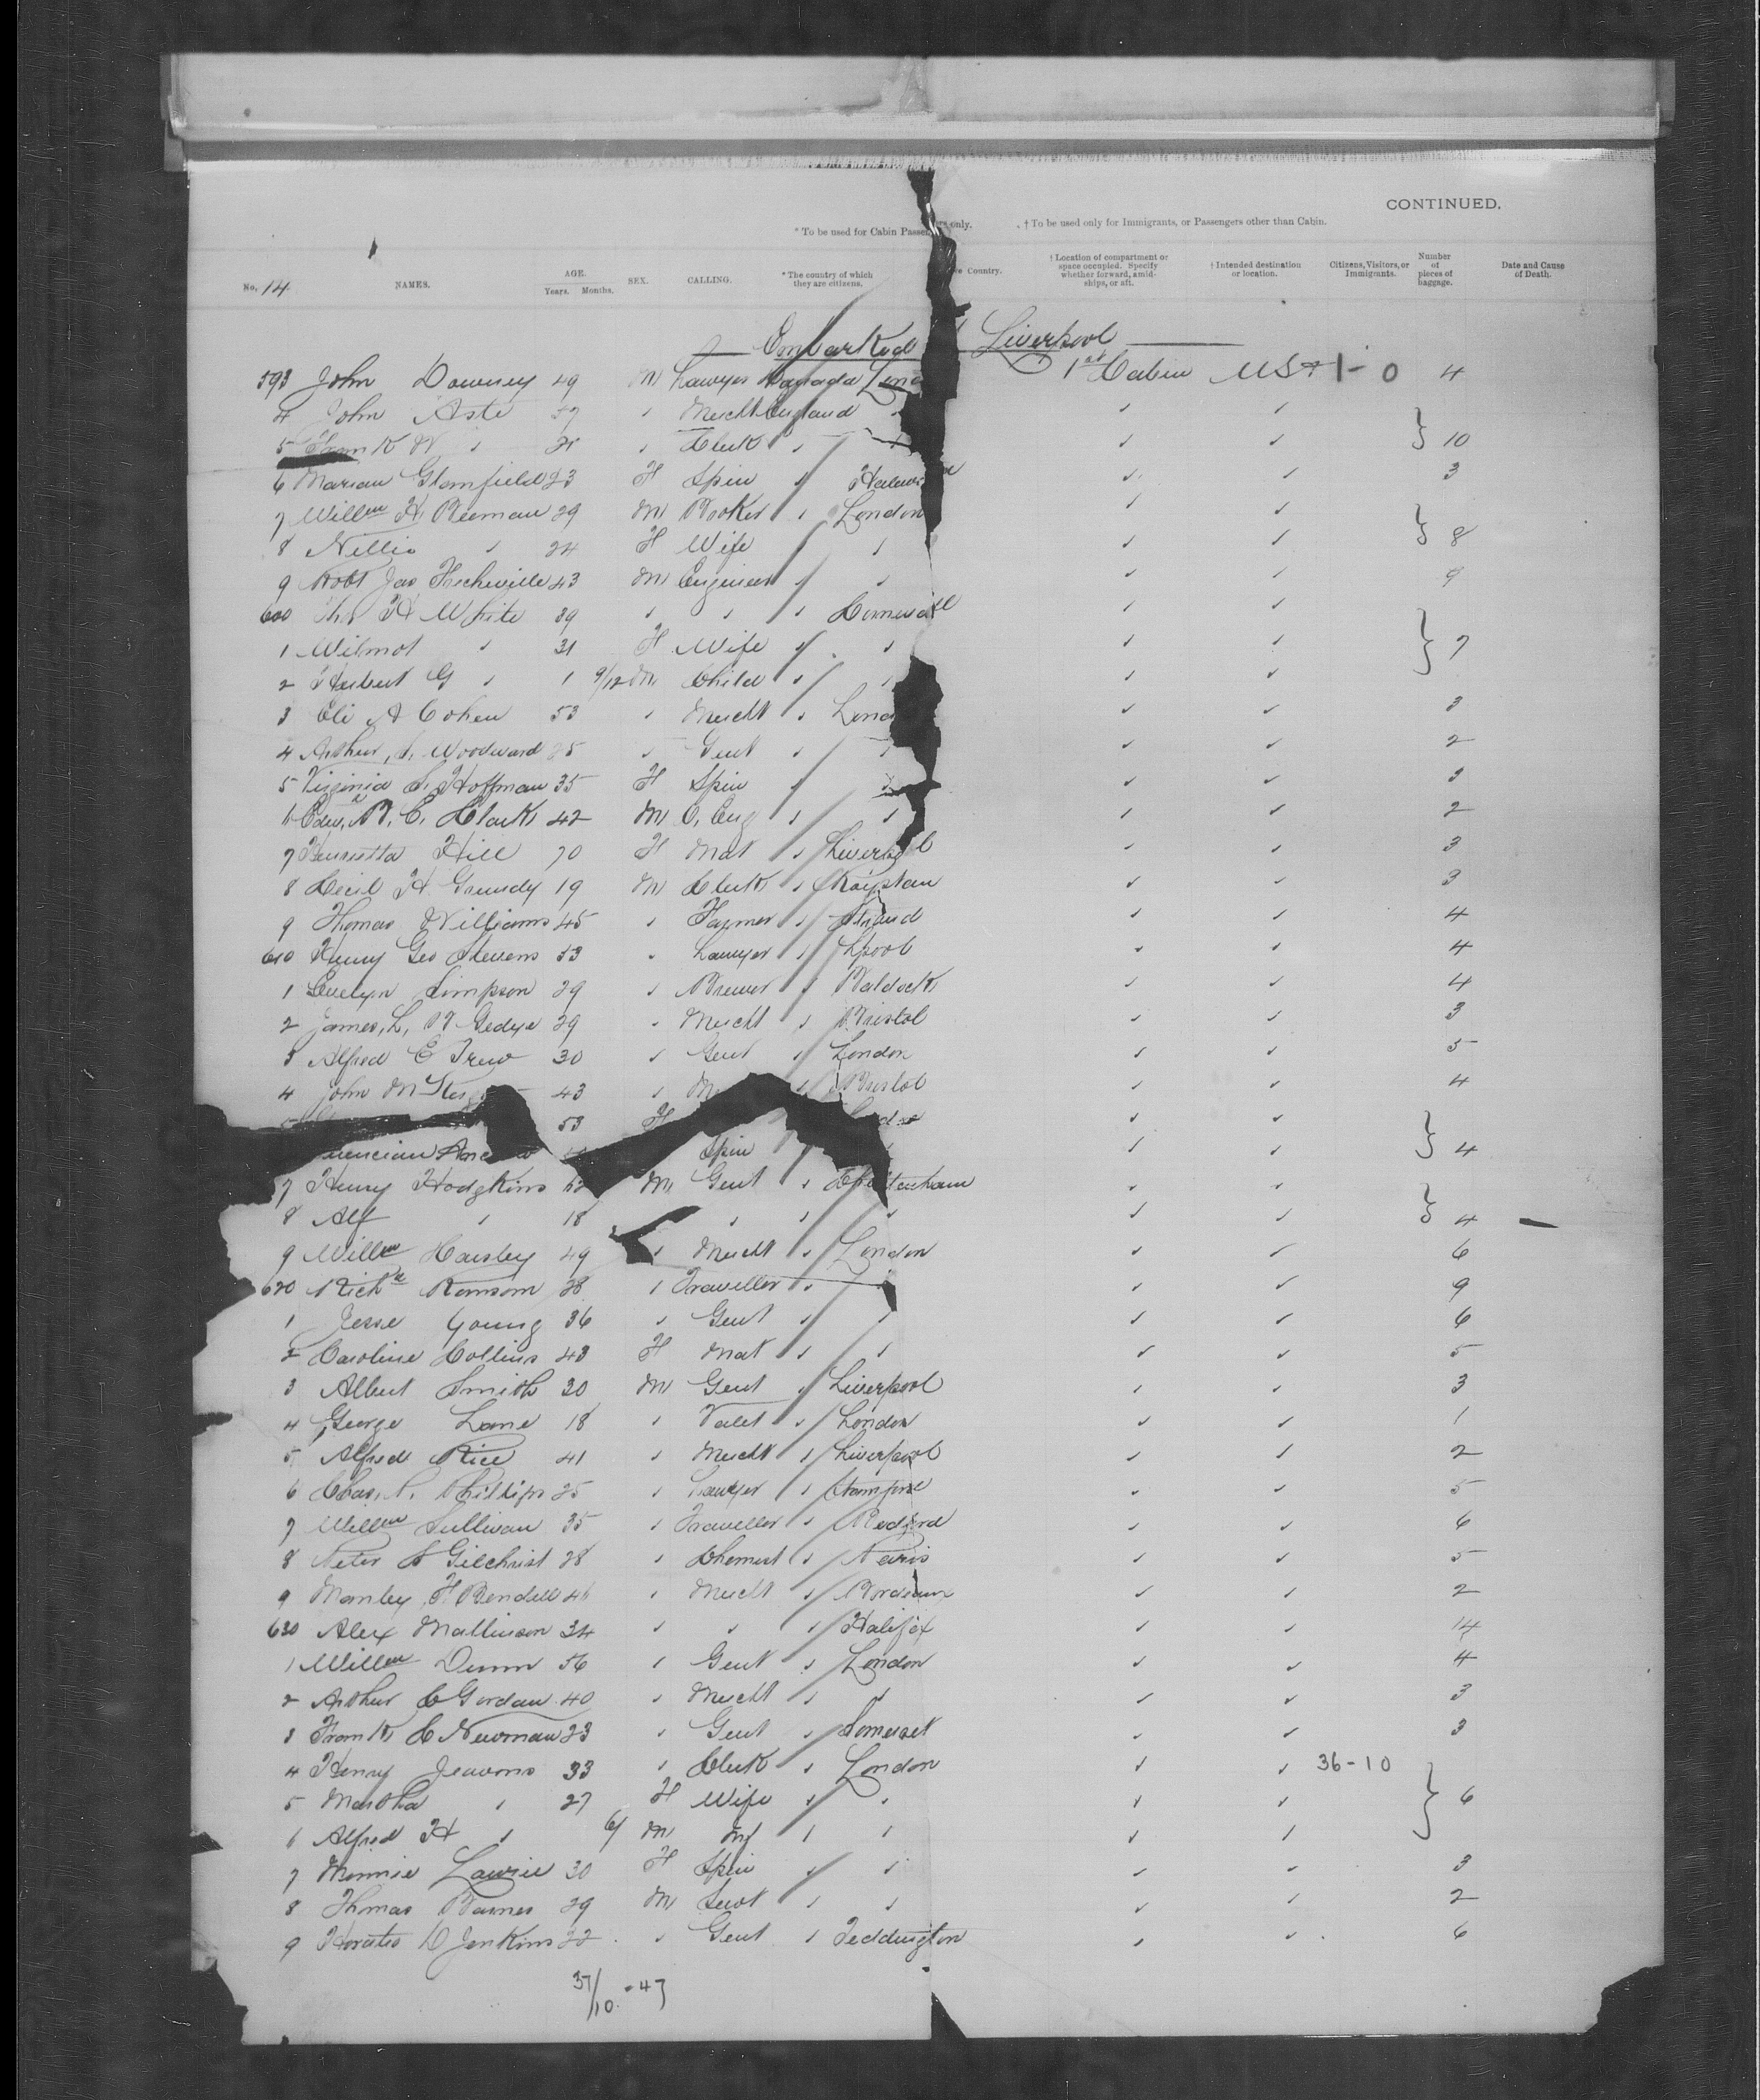 CONTINUED.
* To be used for Cabin Passengers only. † To be used only for Immigrants, or Passengers other than Cabin.
No. 14 NAMES. AGE. Years. Months. SEX. CALLING. * The country of which they are citizens. Country. † Location of compartment or space occupied. Specify whether forward, amidships, or aft. † Intended destination or location. Citizens, Visitors, or Immigrants. Number of pieces of baggage. Date and Cause of Death.
Embarked Liverpool
593 John Downey 49 M Lawyer Canada 1st Cabin USA 1-0 4
4 John Aste Mercht England
5 Frank W Clerk 10
6 Marian Glamfield 23 F Spin 3
7 Willm H Beeman 29 M London
8 Nellie 24 F Wife 8
9 Robt Jas 43 M Engineer 9
600 Thos H White 39
1 Wilmot 31 F Wife 7
2 Herbert G 1 9/12 M Child
3 Eli A Cohen 53 Mercht 3
4 Arthur S. Woodward 25 Gent 2
5 Virginia S. Hoffman 35 F Spin 3
6 Edwd R. C. Clark 42 M C. Eng 2
7 Henrietta Hill 70 F Mat Liverpool 3
8 Cecil H. Grundy 19 M Clerk 3
9 Thomas Williams 45 Farmer 4
610 Henry Geo Stevens 53 Lawyer Lpool 4
1 Evelyn Simpson 29 Brewer Baldock 4
2 James, L, B Gedye 29 Mercht Bristol 3
3 Alfred E Trew 30 Gent London 5
4 John M 43 Bristol 4
53 F
Spin 4
7 Henry Hodgkins M Gent Cheltenham
8 Alf 18 4
9 Willm Haisley 49 Mercht London 6
620 Richd Ransom 28 Traveller 9
1 Jesse Young 36 Gent 6
2 Caroline Collins 43 F Mat 5
3 Albert Smith 30 M Gent Liverpool 3
4 George Lane 18 Valet London 1
5 Alfred Rice 41 Mercht Liverpool 2
6 Chas. Phillips 25 Lawyer Stamford 5
7 Willm Sullivan 35 Traveller Bedford 6
8 Peter S Gilchrist 28 Chemist Paris 5
9 Manley H Bendell 46 Mercht Bordeaux 2
630 Alex Mallinson 34 Halifax 14
1 Willm Dunn 56 Gent London 4
2 Arthur C Gordan 40 Mercht 3
3 Frank C Newman 23 Gent Somerset 3
4 Henry Jeavons 33 Clerk London 36-10
5 Martha 27 F Wife 6
6 Alfred H 6/ M Inf
7 Minnie Lawrie 30 F Spin 3
8 Thomas Barnes 29 M Servt 2
9 Horatio D Jenkins 22 Gent Teddington 6
37/10 = 47